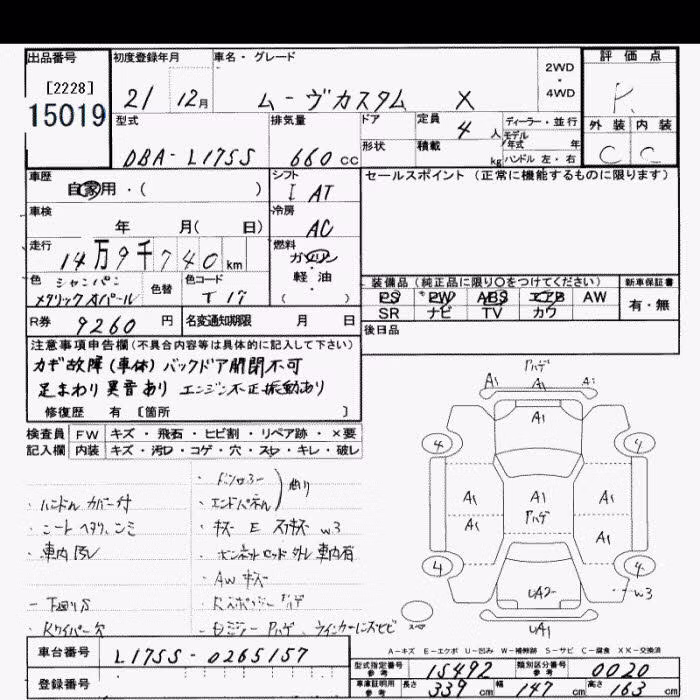 出品番号 初度登録年月 車名・グレード 2WD・4WD 評価点
[2228]
15019
21 12月 ムーヴカスタム X R
型式 排気量 ドア 定員 4人 ディーラー・並行 外装 内装
モデル年式 年
DBA-L175S 660cc 形状 積載 kg ハンドル 左・右 C C
車歴 シフト セールスポイント(正常に機能するものに限ります)
自家用・( ) I AT
車検 冷房
年 月( 日) AC
走行 燃料
14万9千740km ガソリン・軽油
色 色替 色コード ( ) 装備品(純正品に限り○をつけてください) 新車保証書
シャンパン
メタリックオパール T17 PS PW ABS エアB AW 有・無
SR ナビ TV カワ
R券 9260円 名変通知期限 月 日 後日品
注意事項申告欄(不具合内容等は具体的に記入して下さい)
カギ故障(車体)バックドア開閉不可
足まわり異音あり エンジン不正振動あり
修復歴 有 [箇所 ]
検査員 FW キズ・飛石・ヒビ割・リペア跡・×要
記入欄 内装 キズ・汚れ・コゲ・穴・スレ・キレ・破レ
ハゲ
A1 A1 A1
4 4
A1 A1 A1
A1 ハゲ A1
4 4
UA2 w3
UA1
・ハンドルカバー付 ・エンドパネル 曲り
・シートヘタリ、シミ ・キズ E スリキズ w3
・車内汚レ ・ボンネットロッド外レ車内有
・AWキズ
・下廻りサビ
・Rワイパー欠
A-キズ E-エクボ U-凹み W-補修跡 S-サビ C-腐食 XX-交換済
車台番号 L175S-0265157 型式指定番号 参考 15492 類別区分番号 参考 0020
登録番号 車庫証明用 参考 長さ 339cm 幅 147cm 高さ 163cm